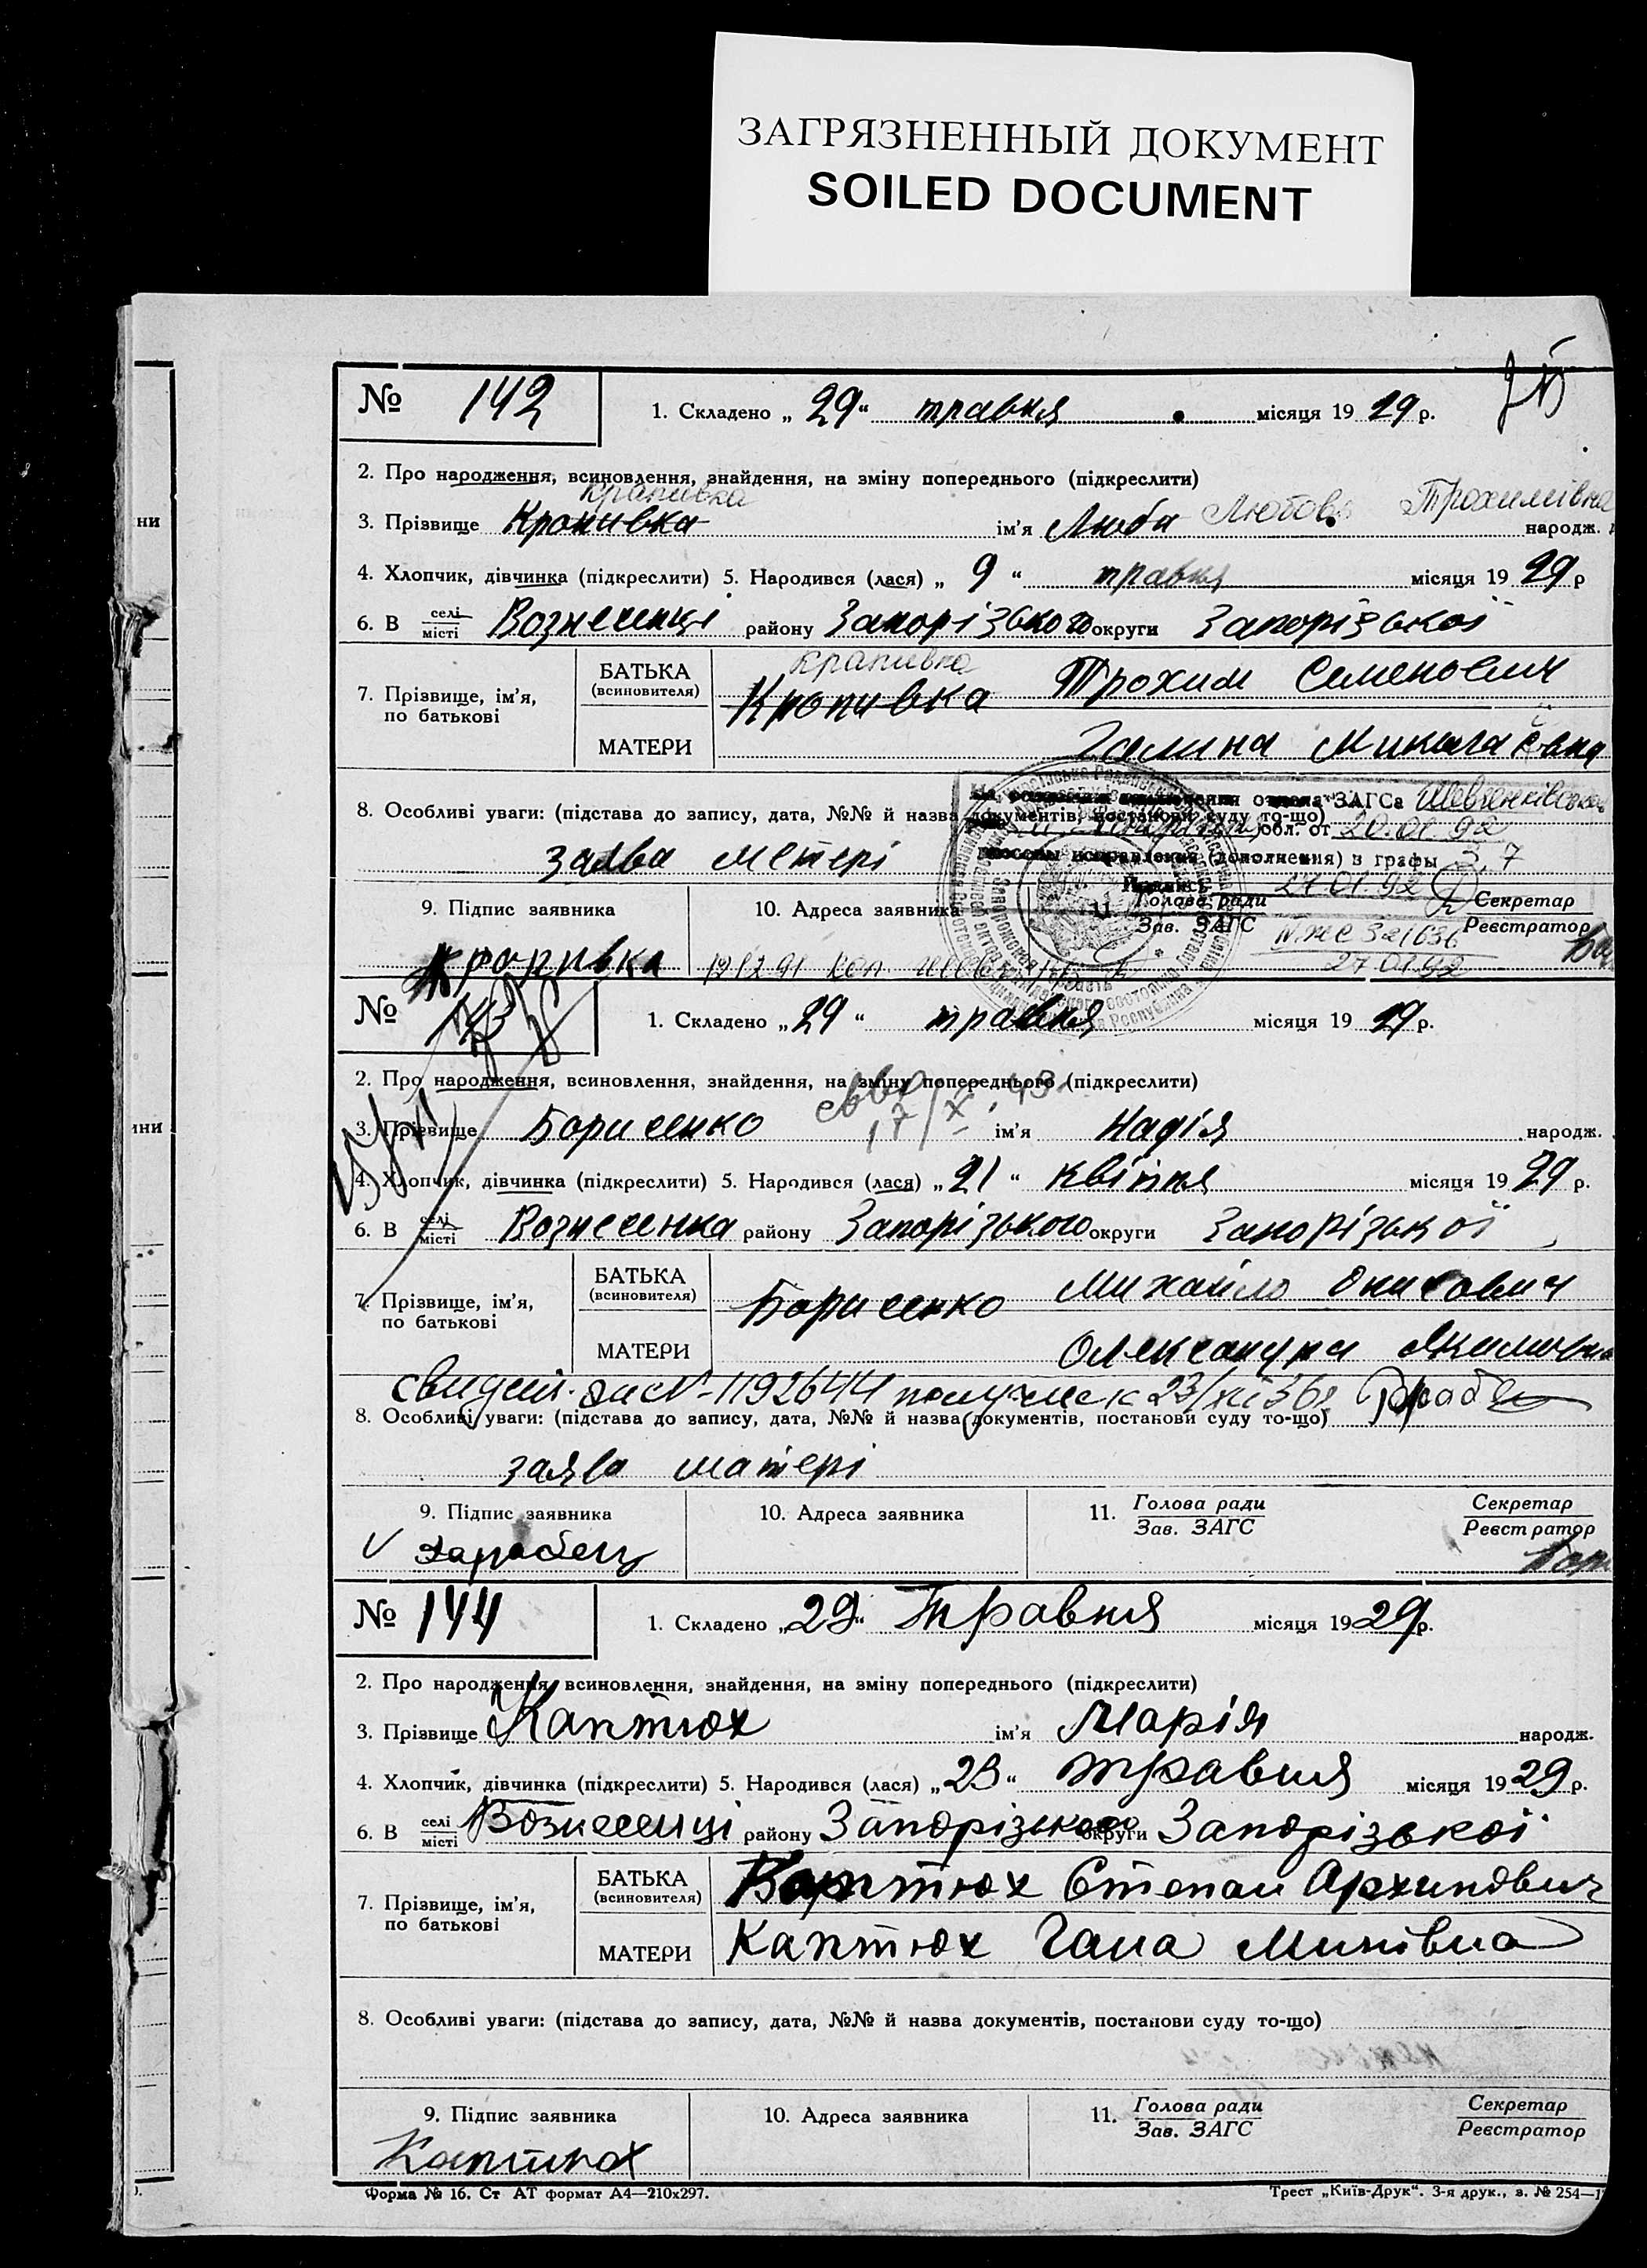 ЗАГРЯЗНЕННЫЙ ДОКУМЕНТ
SOILED DOCUMENT
№ 142 1. Складено „ 29 “ травня місяця 19 29 р.
2. Про народження, всиновлення, знайдення, на зміну попереднього (підкреслити)
Крапивка
3. Прізвище Кропивка ім'я Люба Любовь Трохимівна народж.
4. Хлопчик, дівчинка (підкреслити) 5. Народився (лася) „ 9 “ травня місяця 19 29 р
6. В селі місті Вознесенці району Запорізького округи Запорізької
Крапивка
7. Прізвище, ім'я, по батькові БАТЬКА (всиновителя) Кропивка Трохим Семенович
МАТЕРИ Галина
8. Особливі уваги: (підстава до запису, дата, №№ й назва документів, постанови суду то-що)
отдела ЗАГСа
обл. от 20.01.92
внесены исправления (дополнения) в графы 3,7
27.01.92
заява
9. Підпис заявника 10. Адреса заявника 11. Голова ради Зав. ЗАГС Секретар Реєстратор
27.01.92
№ 143 1. Складено „ 29 “ травня місяця 19 29 р.
2. Про народження, всиновлення, знайдення, на зміну попереднього (підкреслити)
3. Прізвище Борисенко ім'я Надія народж.
4. Хлопчик, дівчинка (підкреслити) 5. Народився (лася) „ 21 “ квітня місяця 19 29 р.
6. В селі місті Вознесенка району Запорізького округи Запорізької
7. Прізвище, ім'я, по батькові БАТЬКА (всиновителя) Борисенко Михайло
МАТЕРИ Олександра
8. Особливі уваги: (підстава до запису, дата, №№ й назва документів, постанови суду то-що)
заява матері
9. Підпис заявника 10. Адреса заявника 11. Голова ради Зав. ЗАГС Секретар Реєстратор
№ 144 1. Складено „ 29 “ Травня місяця 19 29 р.
2. Про народження, всиновлення, знайдення, на зміну попереднього (підкреслити)
3. Прізвище Каптюх ім'я Марія народж.
4. Хлопчик, дівчинка (підкреслити) 5. Народився (лася) „ 23 “ травня місяця 19 29 р.
6. В селі місті Вознесенці району Запорізького округи Запорізької
7. Прізвище, ім'я, по батькові БАТЬКА (всиновителя) Каптюх Степан Архипович
МАТЕРИ Каптюх Гана
8. Особливі уваги: (підстава до запису, дата, №№ й назва документів, постанови суду то-що)
9. Підпис заявника 10. Адреса заявника 11. Голова ради Зав. ЗАГС Секретар Реєстратор
Каптюх
Форма № 16. Ст АТ формат А4—210х297. Трест „Київ-Друк“. 3-я друк., з. № 254—